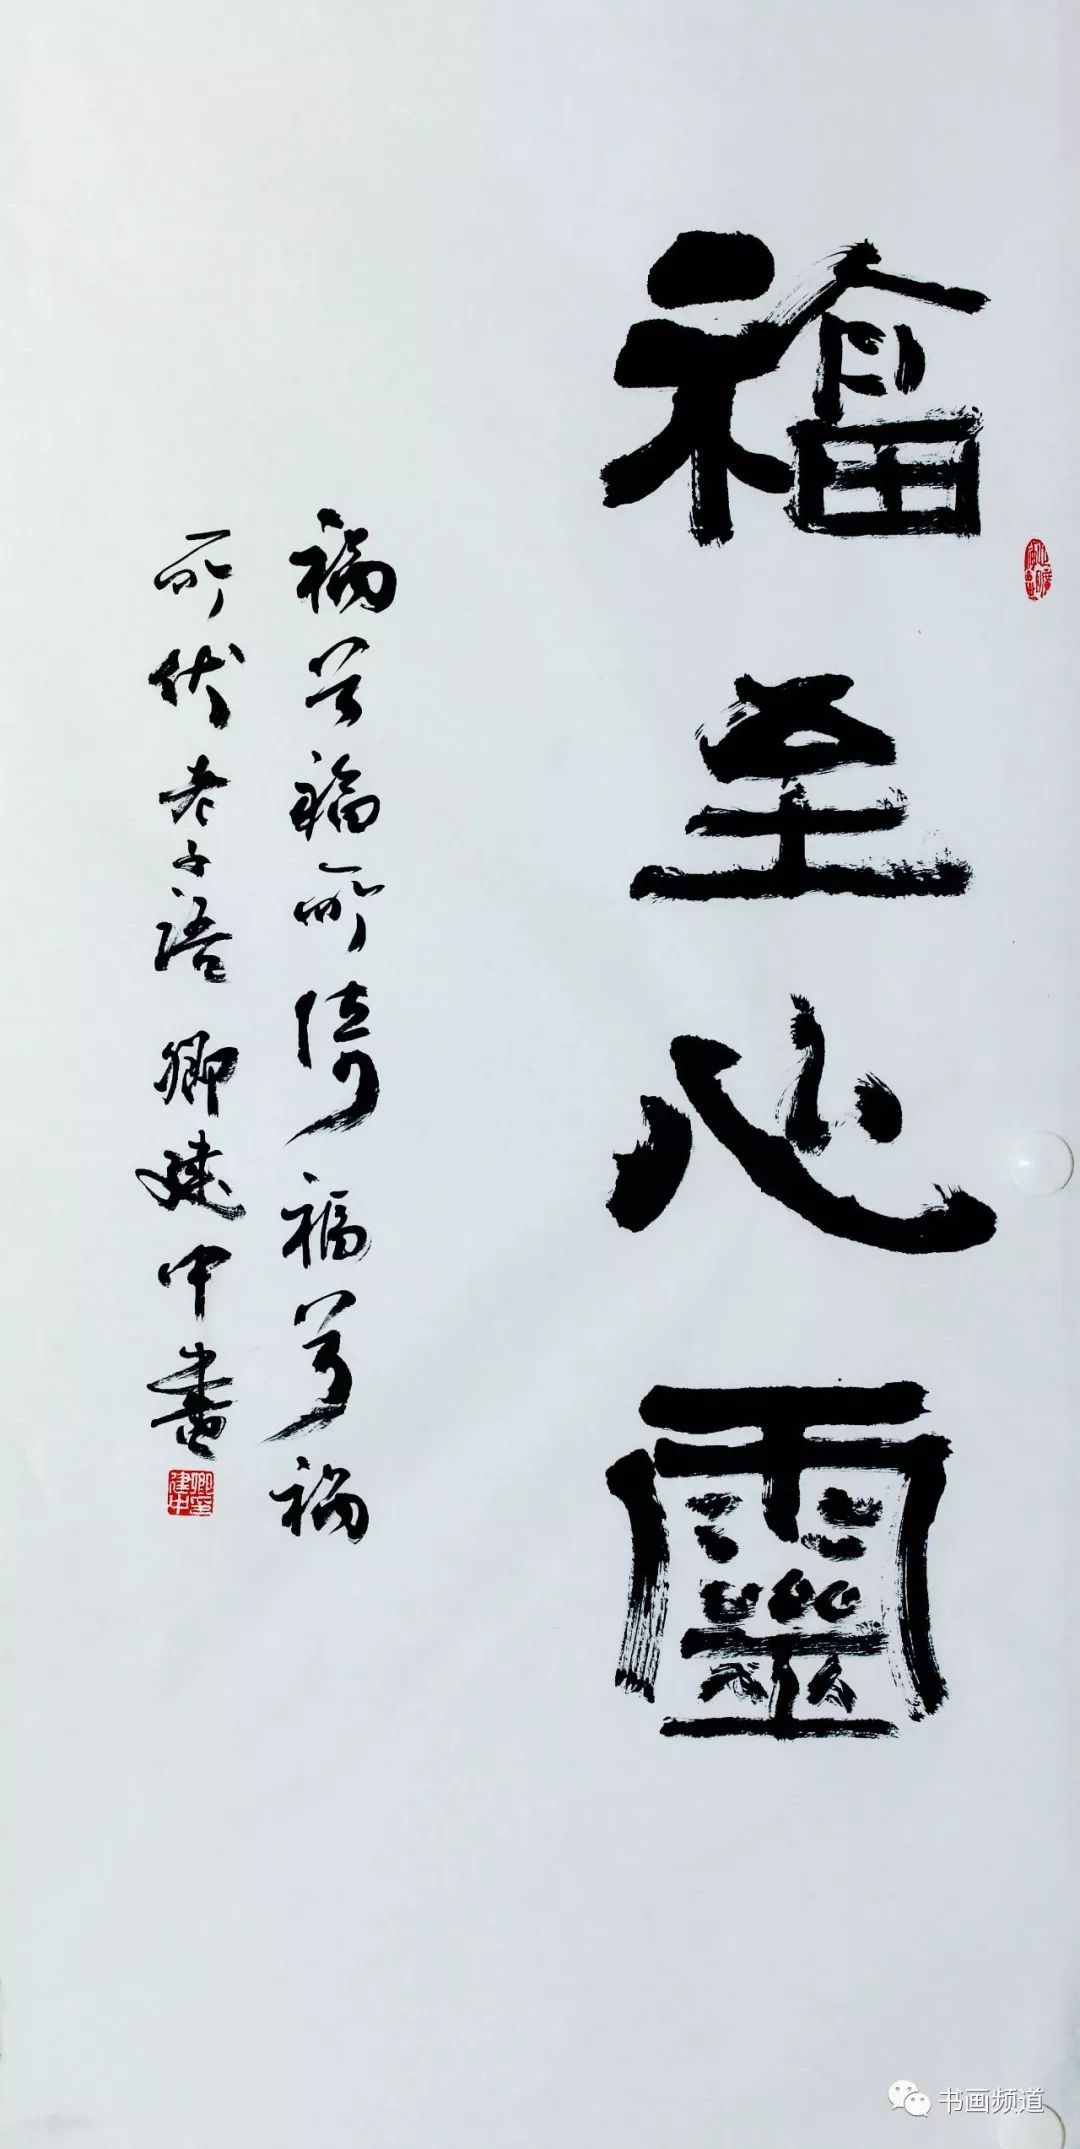 福至心靈
禍兮福所倚福兮禍
所伏老子語卿建中書
卿建中印
书画频道